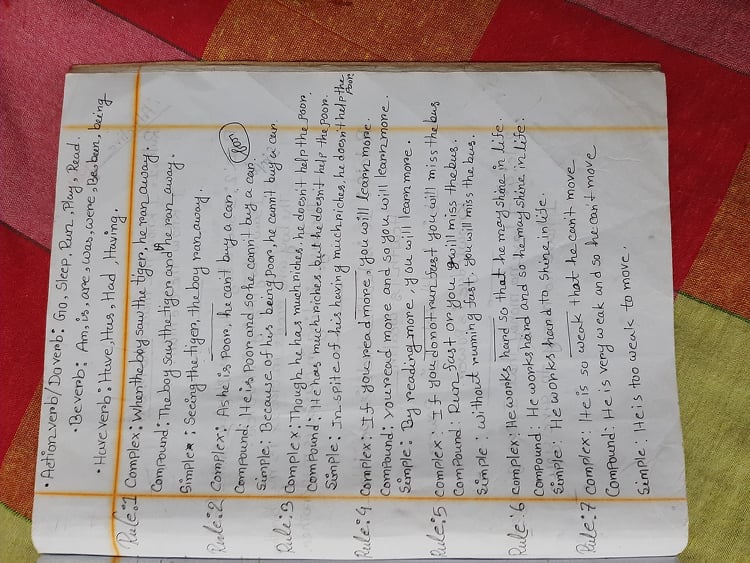 • Action verb/Do verb: Go, Sleep, Run, Play, Read.
• Be verb: Am, is, are, was, were, Be, been, being
• Have verb: Have, Has, Had, Having.
Rule:1 Complex: When the boy saw the tiger, he ran away.
Compound: The boy saw the tiger and he ran away.
Simple: Seeing the tiger, the boy ran away.
Rule:2 Complex: As he is poor, he can't buy a car.
Compound: He is Poor and so he cann't buy a car.
Simple: Because of his being poor, he cann't buy a car.
Rule:3 Complex: Though he has much riches, he doesn't help the poor.
Compound: He has much riches, but he doesn't help the poor.
Simple: In spite of his having much riches, he doesn't help the poor
Rule:4 Complex: If you read more, you will learn more.
Compound: you read more and so you will learn more.
Simple: By reading more, you will learn more.
Rule:5 Complex: If you do not run fast you will miss the bus
Compound: Run fast or you will miss the bus.
Simple: without running fast, you will miss the bus.
Rule:6 Complex: He works hard so that he may shine in life.
Compound: He works hard and so he may shine in life.
Simple: He works hard to shine in life.
Rule:7 Complex: He is so weak that he can't move
Compound: He is very weak and so he can't move
Simple: He is too weak to move.